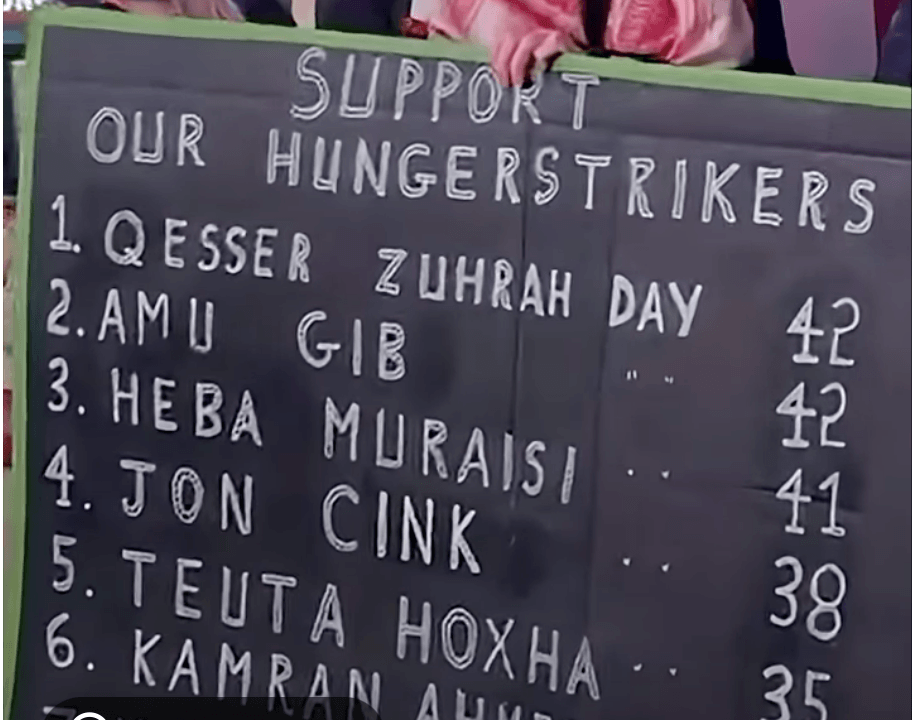 SUPPORT
OUR HUNGERSTRIKERS
1. QESSER ZUHRAH DAY 42
2. AMU GIB " " 42
3. HEBA MURAISI " " 41
4. JON CINK " " 38
5. TEUTA HOXHA " " 35
6. KAMRAN